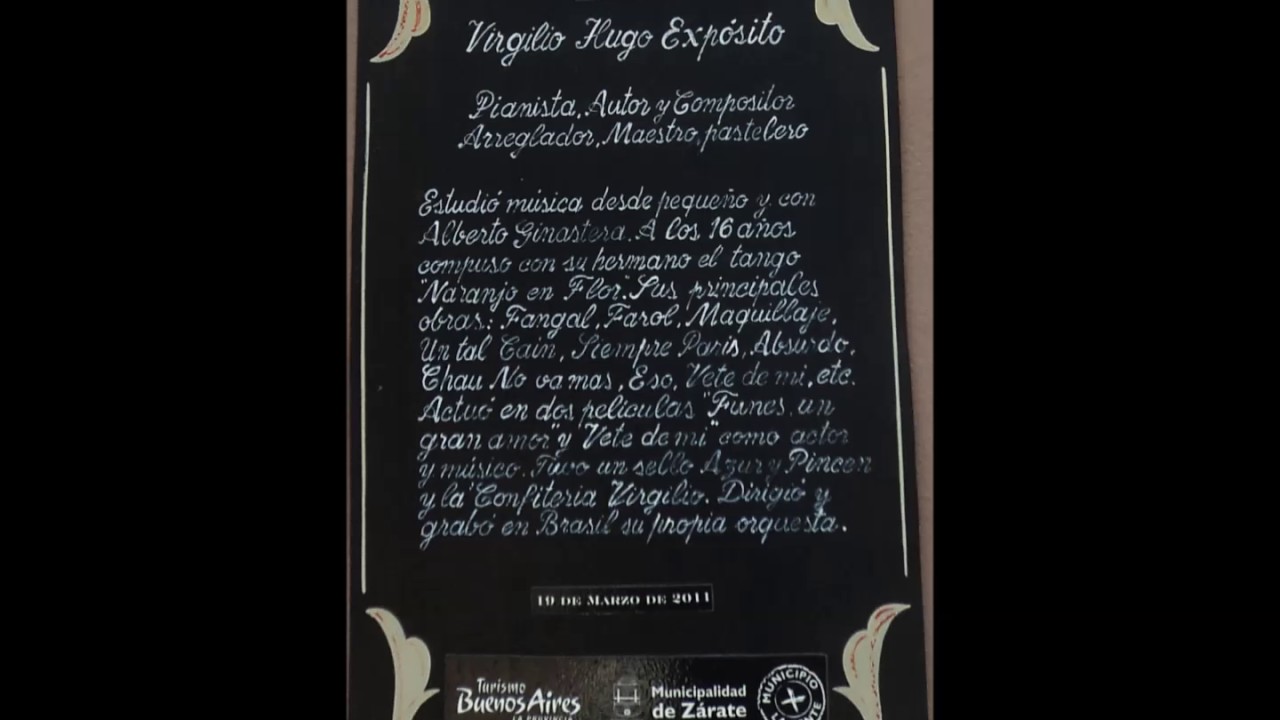 Virgilio Hugo Expósito
Pianista, Autor y Compositor
Arreglador, Maestro, pastelero
Estudió música desde pequeño y con
Alberto Ginastera. A los 16 años
compuso con su hermano el tango
"Naranjo en Flor". Sus principales
obras: Fangal, Farol, Maquillaje,
Un tal Caín, Siempre Paris, Absurdo,
Chau No va mas, Eso, Vete de mi, etc.
Actuó en dos películas "Funes, un
gran amor" y "Vete de mi" como actor
y músico. Tuvo un sello Azur y Pincen
y la Confiteria Virgilio. Dirigió y
grabó en Brasil su propia orquesta.
19 DE MARZO DE 2011
Turismo
Buenos Aires
LA PROVINCIA
Municipalidad
de Zárate
MUNICIPIO